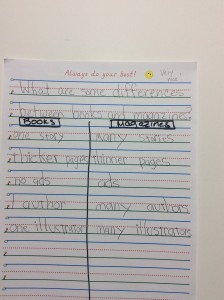 Always do your best! Very nice
What are some differences
between books and magazines?
BOOKS MAGAZINES
one story many stories
thicker pages thinner pages
no ads ads
1 author many authors
one illustrator many illustrators